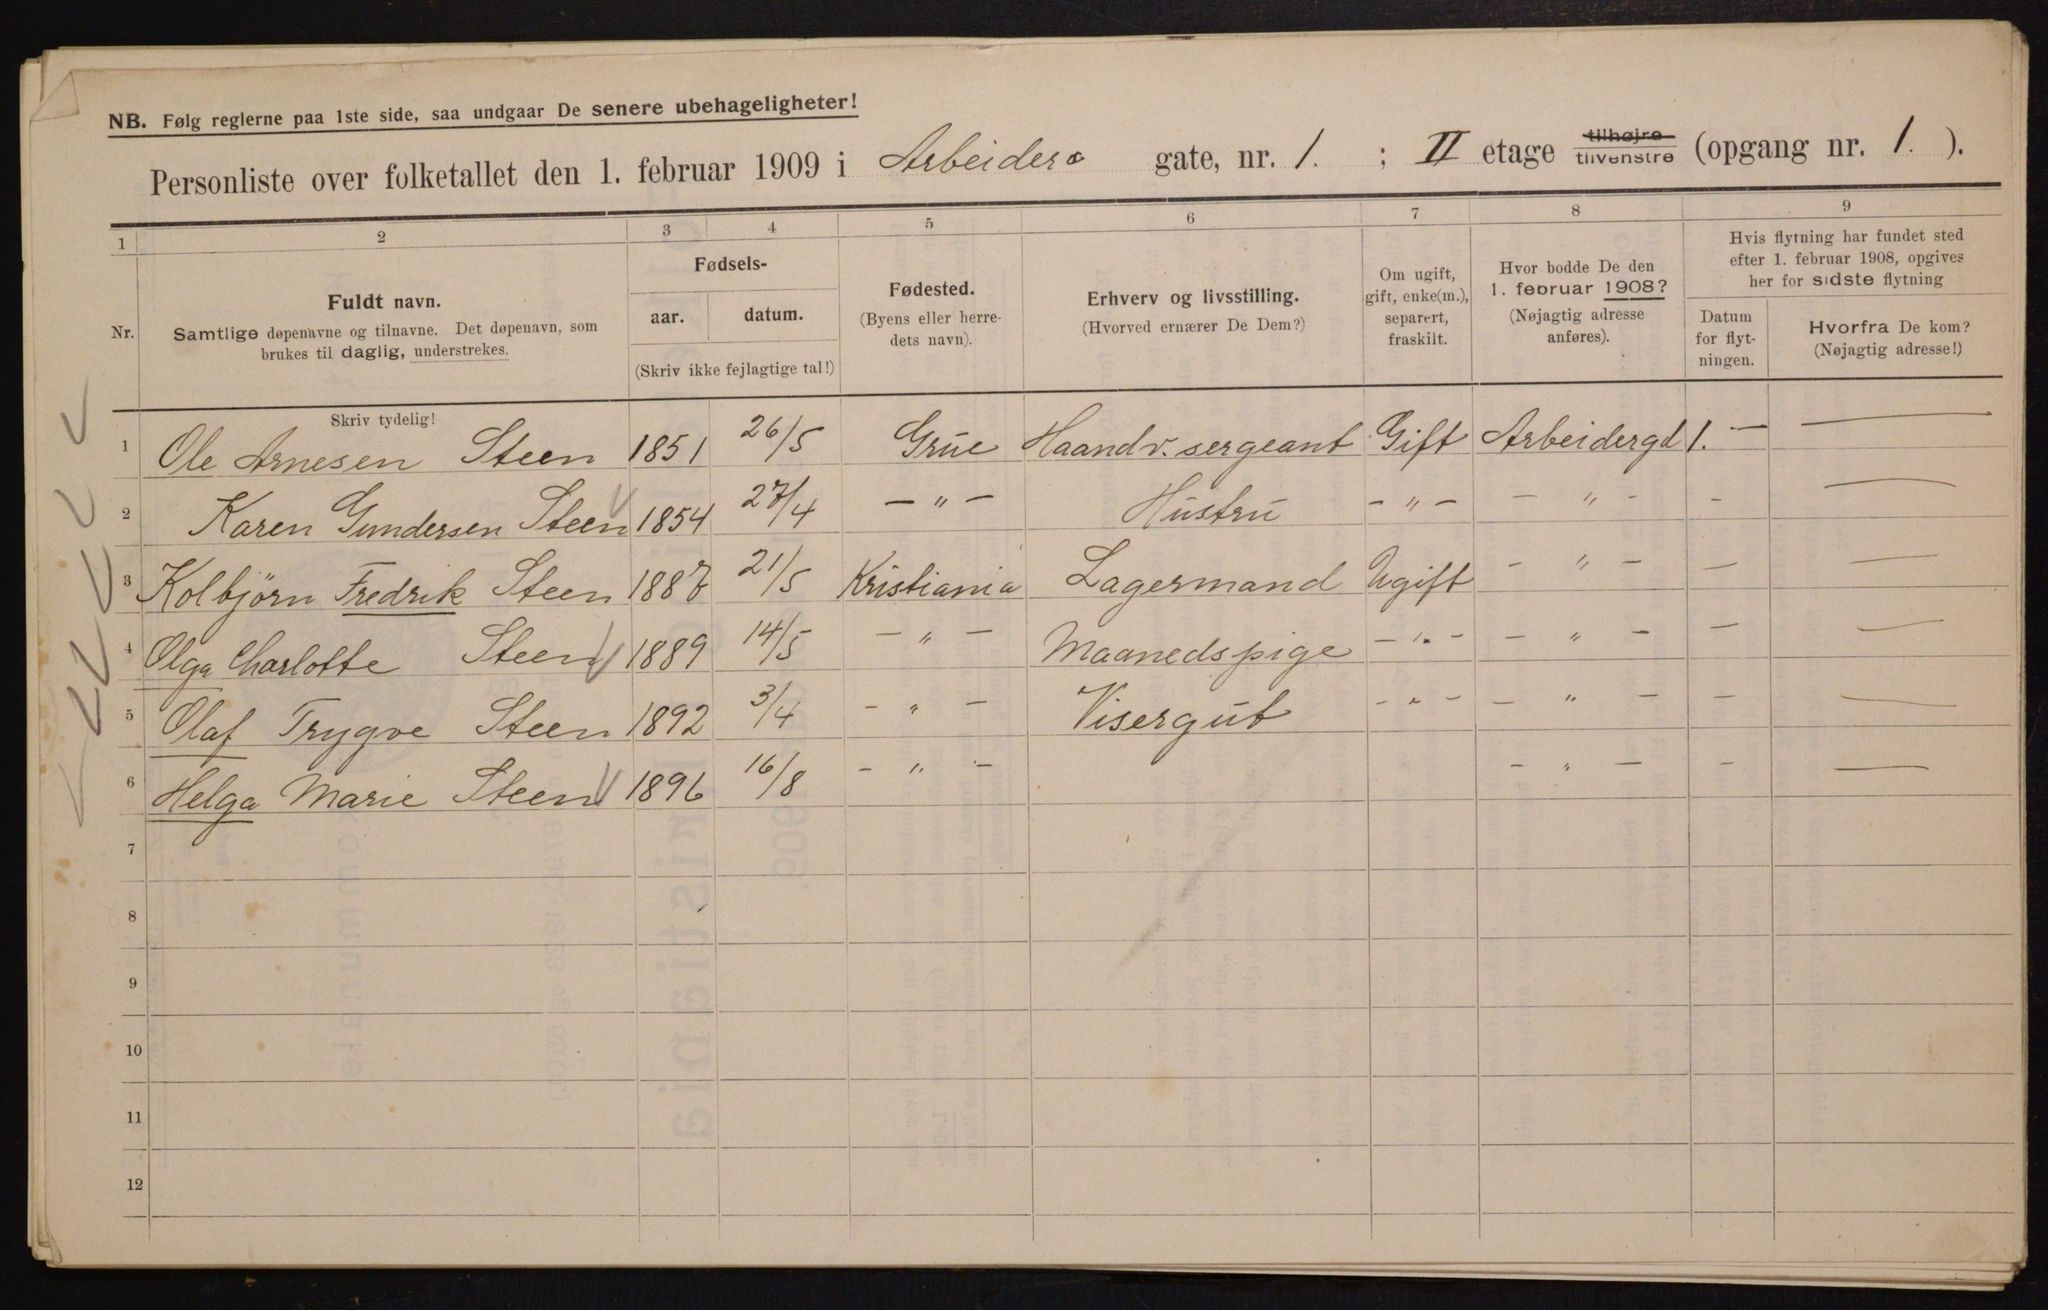 NB. Følg reglerne paa 1ste side, saa undgaar De senere ubehageligheter!
Personliste over folketallet den 1. februar 1909 i Arbeider gate, nr. 1. ; II etage tilhøjre tilvenstre (opgang nr. 1. ).
1 2 3 4 5 6 7 8 9
Nr. Fuldt navn. Samtlige døpenavne og tilnavne. Det døpenavn, som brukes til daglig, understrekes.
Fødsels- aar. datum. (Skriv ikke fejlagtige tal!)
Fødested. (Byens eller herredets navn).
Erhverv og livsstilling. (Hvorved ernærer De Dem?)
Om ugift, gift, enke(m.), separert, fraskilt.
Hvor bodde De den 1. februar 1908? (Nøjagtig adresse anføres).
Hvis flytning har fundet sted efter 1. februar 1908, opgives her for sidste flytning
Datum for flytningen.
Hvorfra De kom? (Nøjagtig adresse!)
Skriv tydelig!
1 Ole Arnesen Steen 1851 26/5 Grue Haandv. sergeant Gift Arbeidergd 1. — —
2 Karen Gundersen Steen 1854 27/4 — " — Hustru — " — — " — — —
3 Kolbjørn Fredrik Steen 1887 21/5 Kristiania Lagermand Ugift — " — — —
4 Olga Charlotte Steen 1889 14/5 — " — Maanedspige — " — — " — — —
5 Olaf Trygve Steen 1892 3/4 — " — Visergut — " — — " — — —
6 Helga Marie Steen 1896 16/8 — " — — " — — —
7
8
9
10
11
12